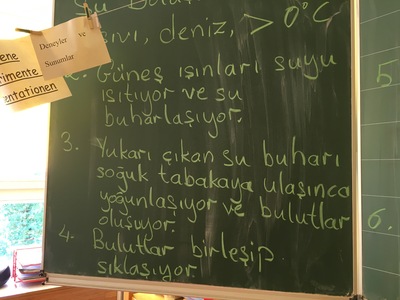 Deneyler ve
Sunumlar
ene
rimente
entationen
Su
deniz, > 0°C
2. Güneş ışınları suyu
ısıtıyor ve su
buharlaşıyor.
3. Yukarı çıkan su buharı
soğuk tabakaya ulaşınca
yoğunlaşıyor ve bulutlar
oluşuyor.
4. Bulutlar birleşip
sıklaşıyor
5
6.